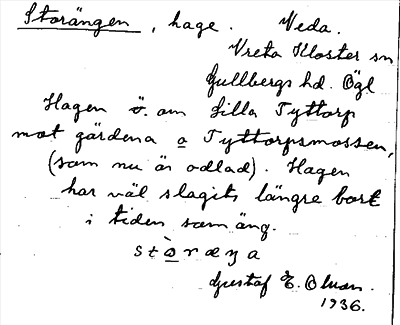 Storängen, hage. Veda.
Vreta Kloster sn
Gullbergs hd. Ögl
Hagen ö. om Lilla Tyttorp
mot gärdena o Tyttorpsmossen,
(som nu är odlad). Hagen
har väl slagits längre bort
i tiden som äng.
stòræŋa
Gustaf E. Olson.
1936.